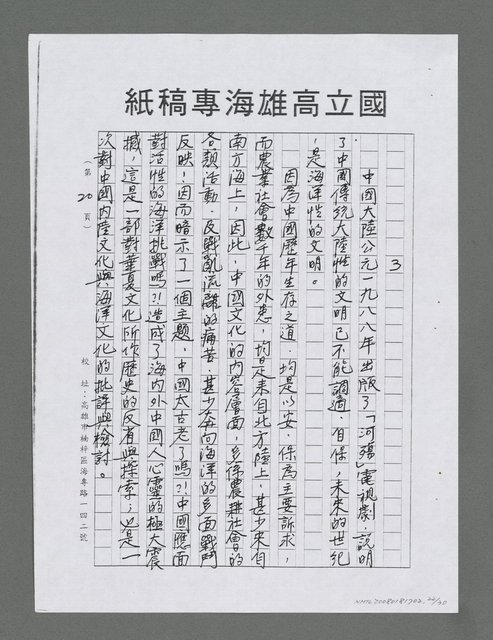 國立高雄海專稿紙
3
中國大陸公元一九八八年出版了「河殤」電視劇，說明
了中國傳統大陸性的文明已不能調適、自保，未來的世紀
，是海洋性的文明。
因為中國歷年生存之道，均是以安、保為主要訴求，
而農業社會數千年的外患，均是來自北方陸上，甚少來自
南方海上，因此，中國文化的內容層面，多係農耕社會的
各類活動，反戰亂流離的痛苦，甚少奔向海洋的多面戰鬥
反映！因而暗示了一個主題，中國太古老了嗎？！中國應面
對活性的海洋挑戰嗎？！造成了海內外中國人心靈的極大震
撼，這是一部對華夏文化所作歷史的反省與探索；也是一
次對中國內陸文化與海洋文化的批評與檢討。
（第 20 頁）
校 址：高雄市楠梓區海專路一四二號
NMTL20080181702. 22/30